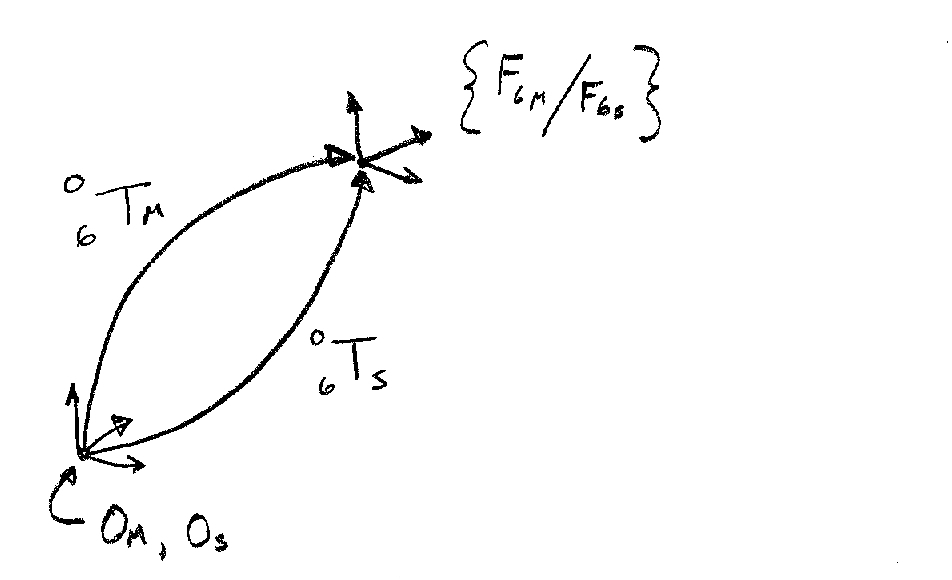 {F6M/F6s}
0
6TM
0
6Ts
OM, Os